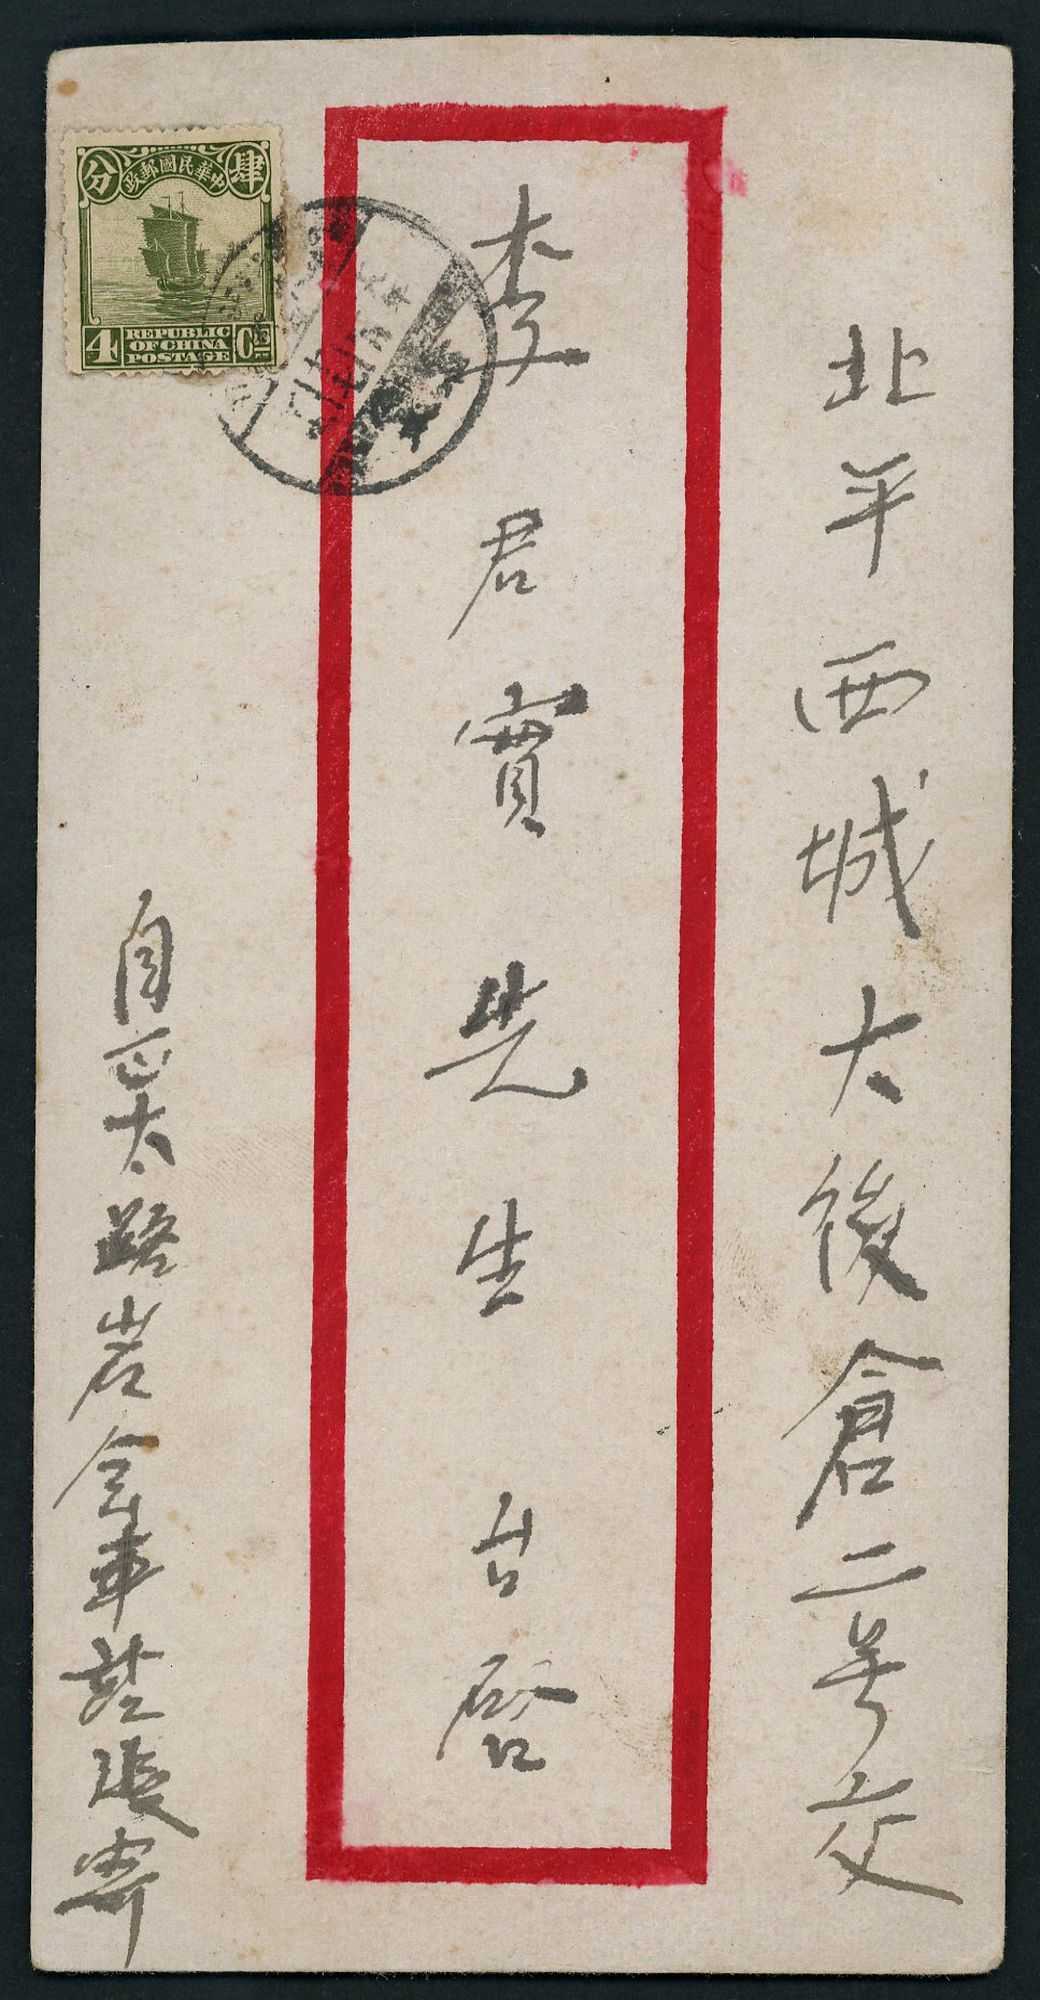 北平西城大後倉二号交
李君實先生台啓
自正太路岩會車站張寄
肆分
中華民國郵政
4 Cts
REPUBLIC
OF CHINA
POSTAGE